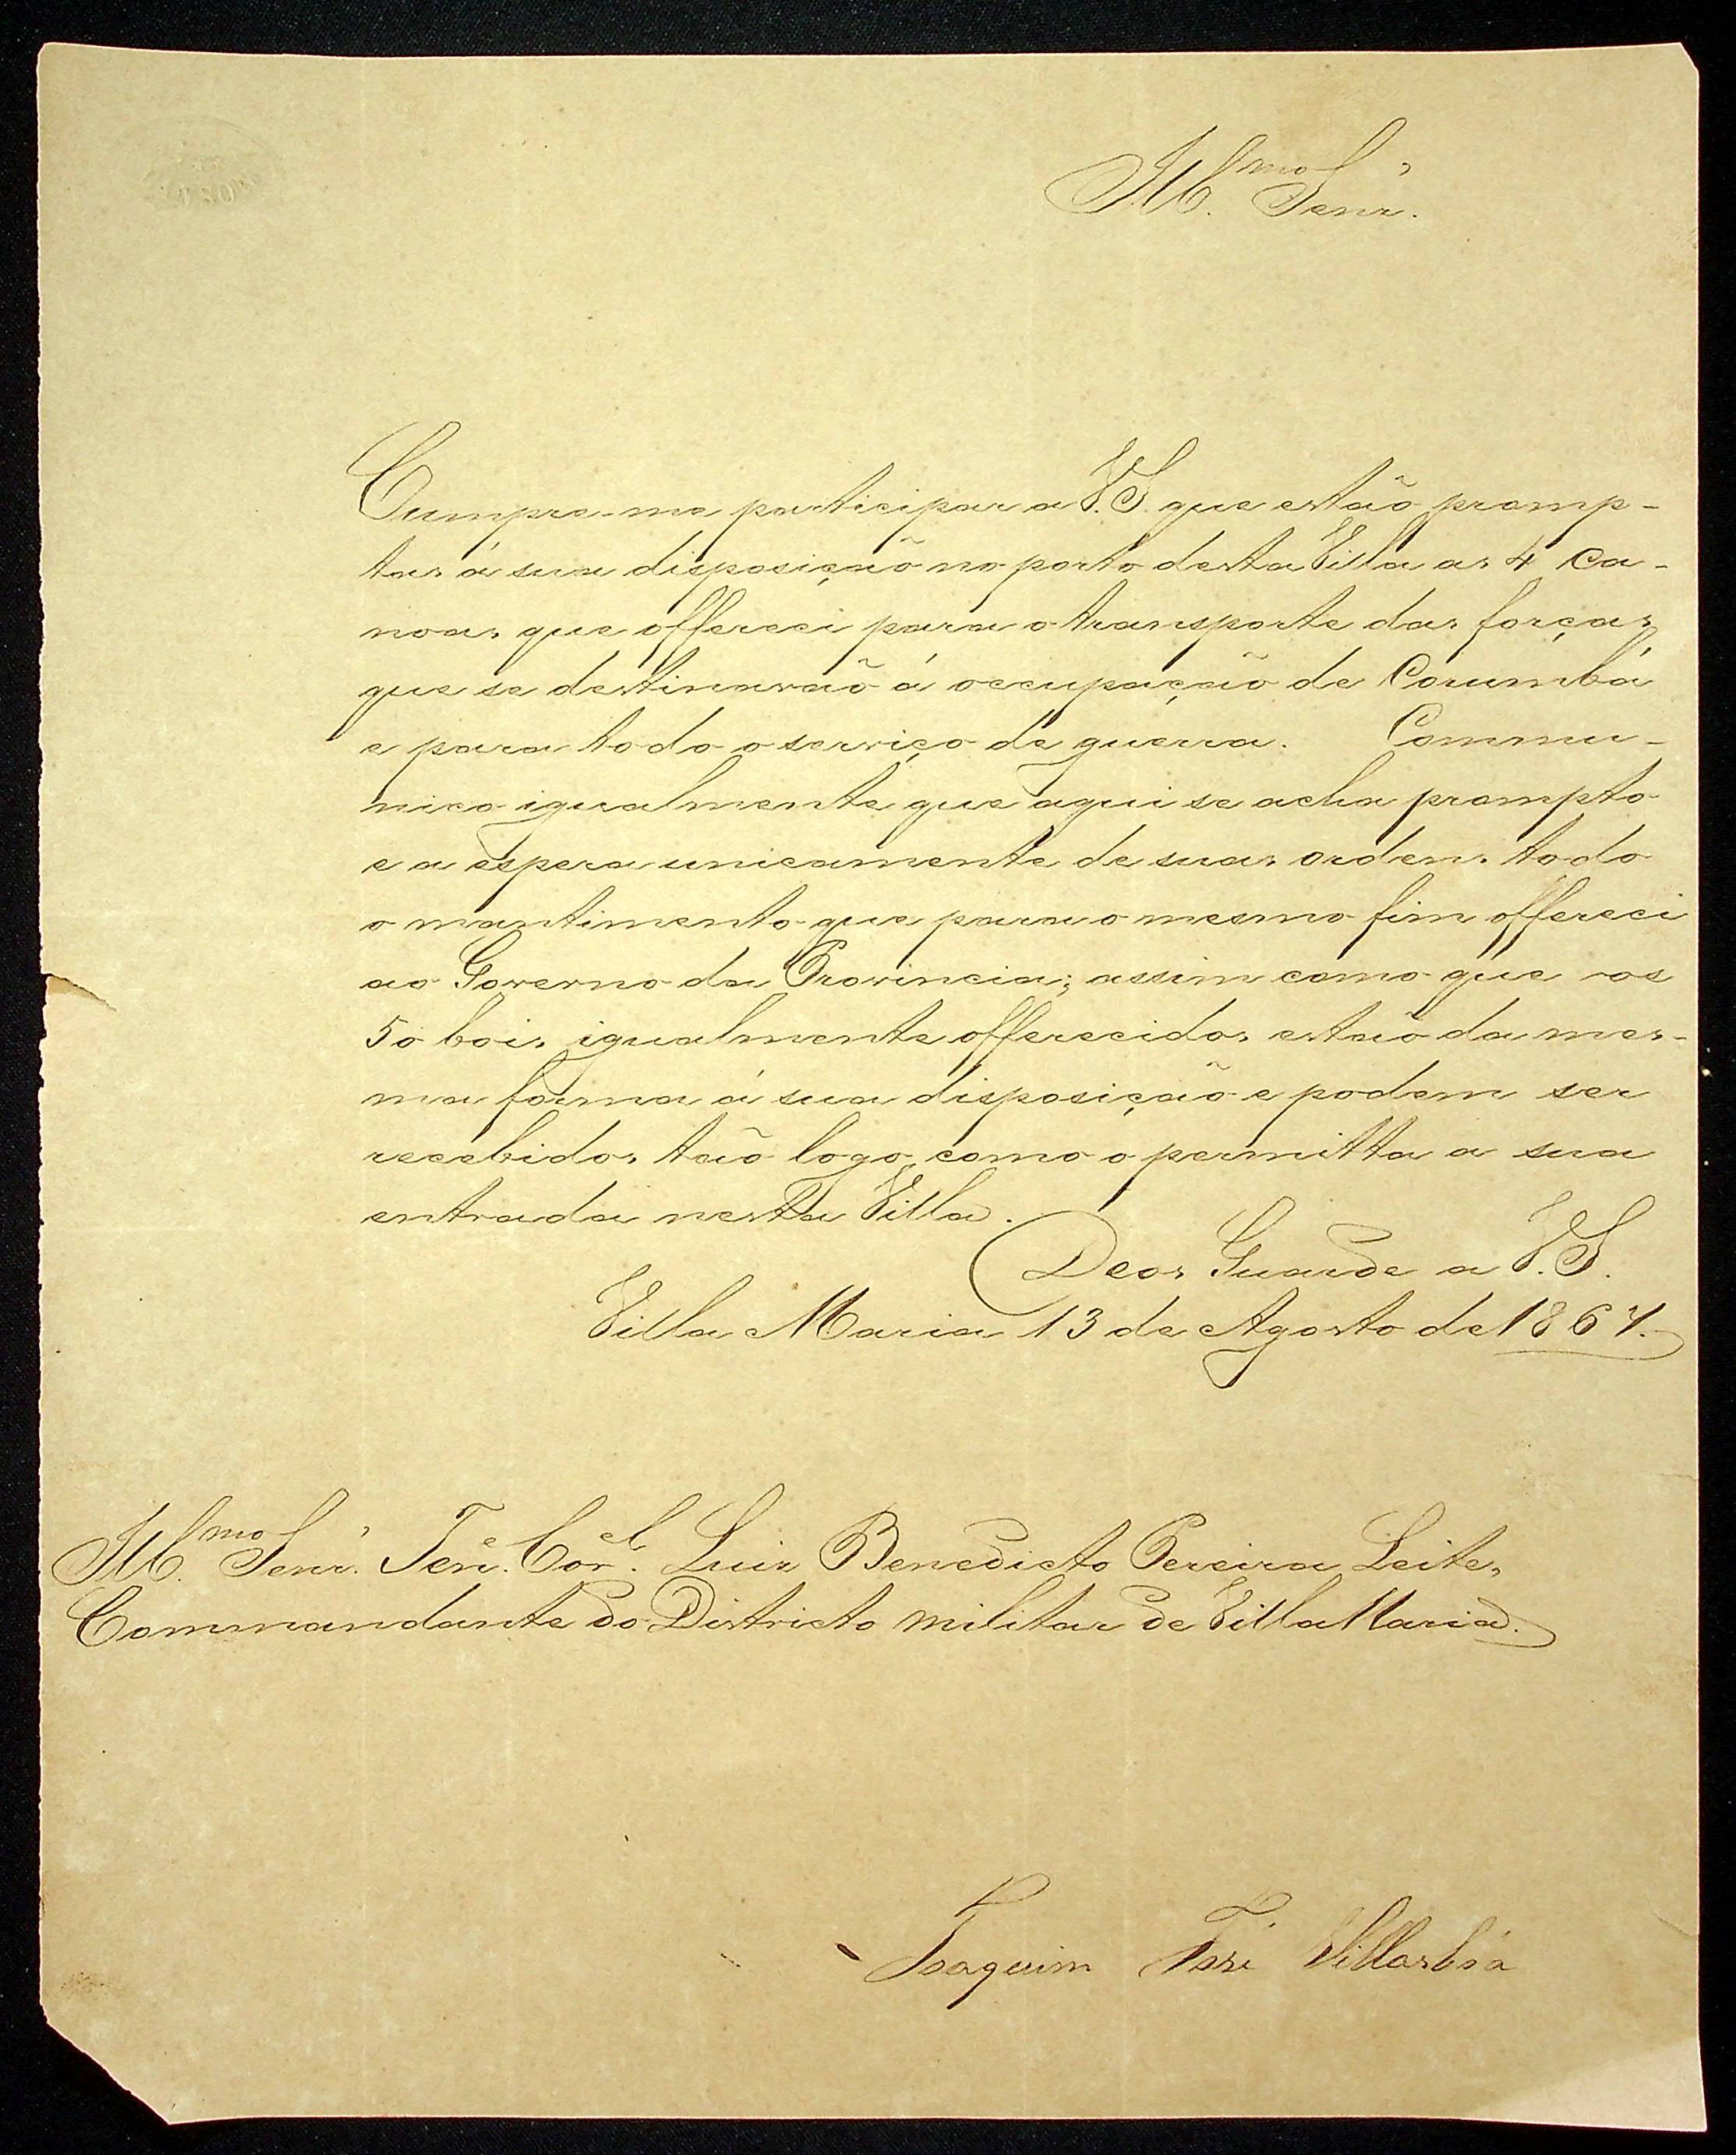 Ill.mo Senr.
Cumpre-me participar a V.S. que estaõ promp-
tas á sua disposiçaõ no porto desta Villa as 4 ca-
noas que offereci para o transporte das forças
que se destinavaõ á occupaçaõ de Corumbá
e para todo o serviço de guerra. Commu-
nico igualmente que aqui se acha prompto
e a espera unicamente de suas ordens todo
o mantimento que para o mesmo fim offereci
ao Governo da Provincia; assim como que os
50 bois igualmente offerecidos estaõ da mes-
ma forma á sua disposiçaõ e podem ser
recebidos taõ logo como o permitta a sua
entrada nesta Villa.
Deos Guarde a V.S.
Villa Maria 13 de Agosto de 1867.
Ill.mo Senr. Ten.e Cor.el Luiz Benedicto Pereira Leite,
Commandante do Districto militar de Villa Maria.
Joaquim José Villasbôa